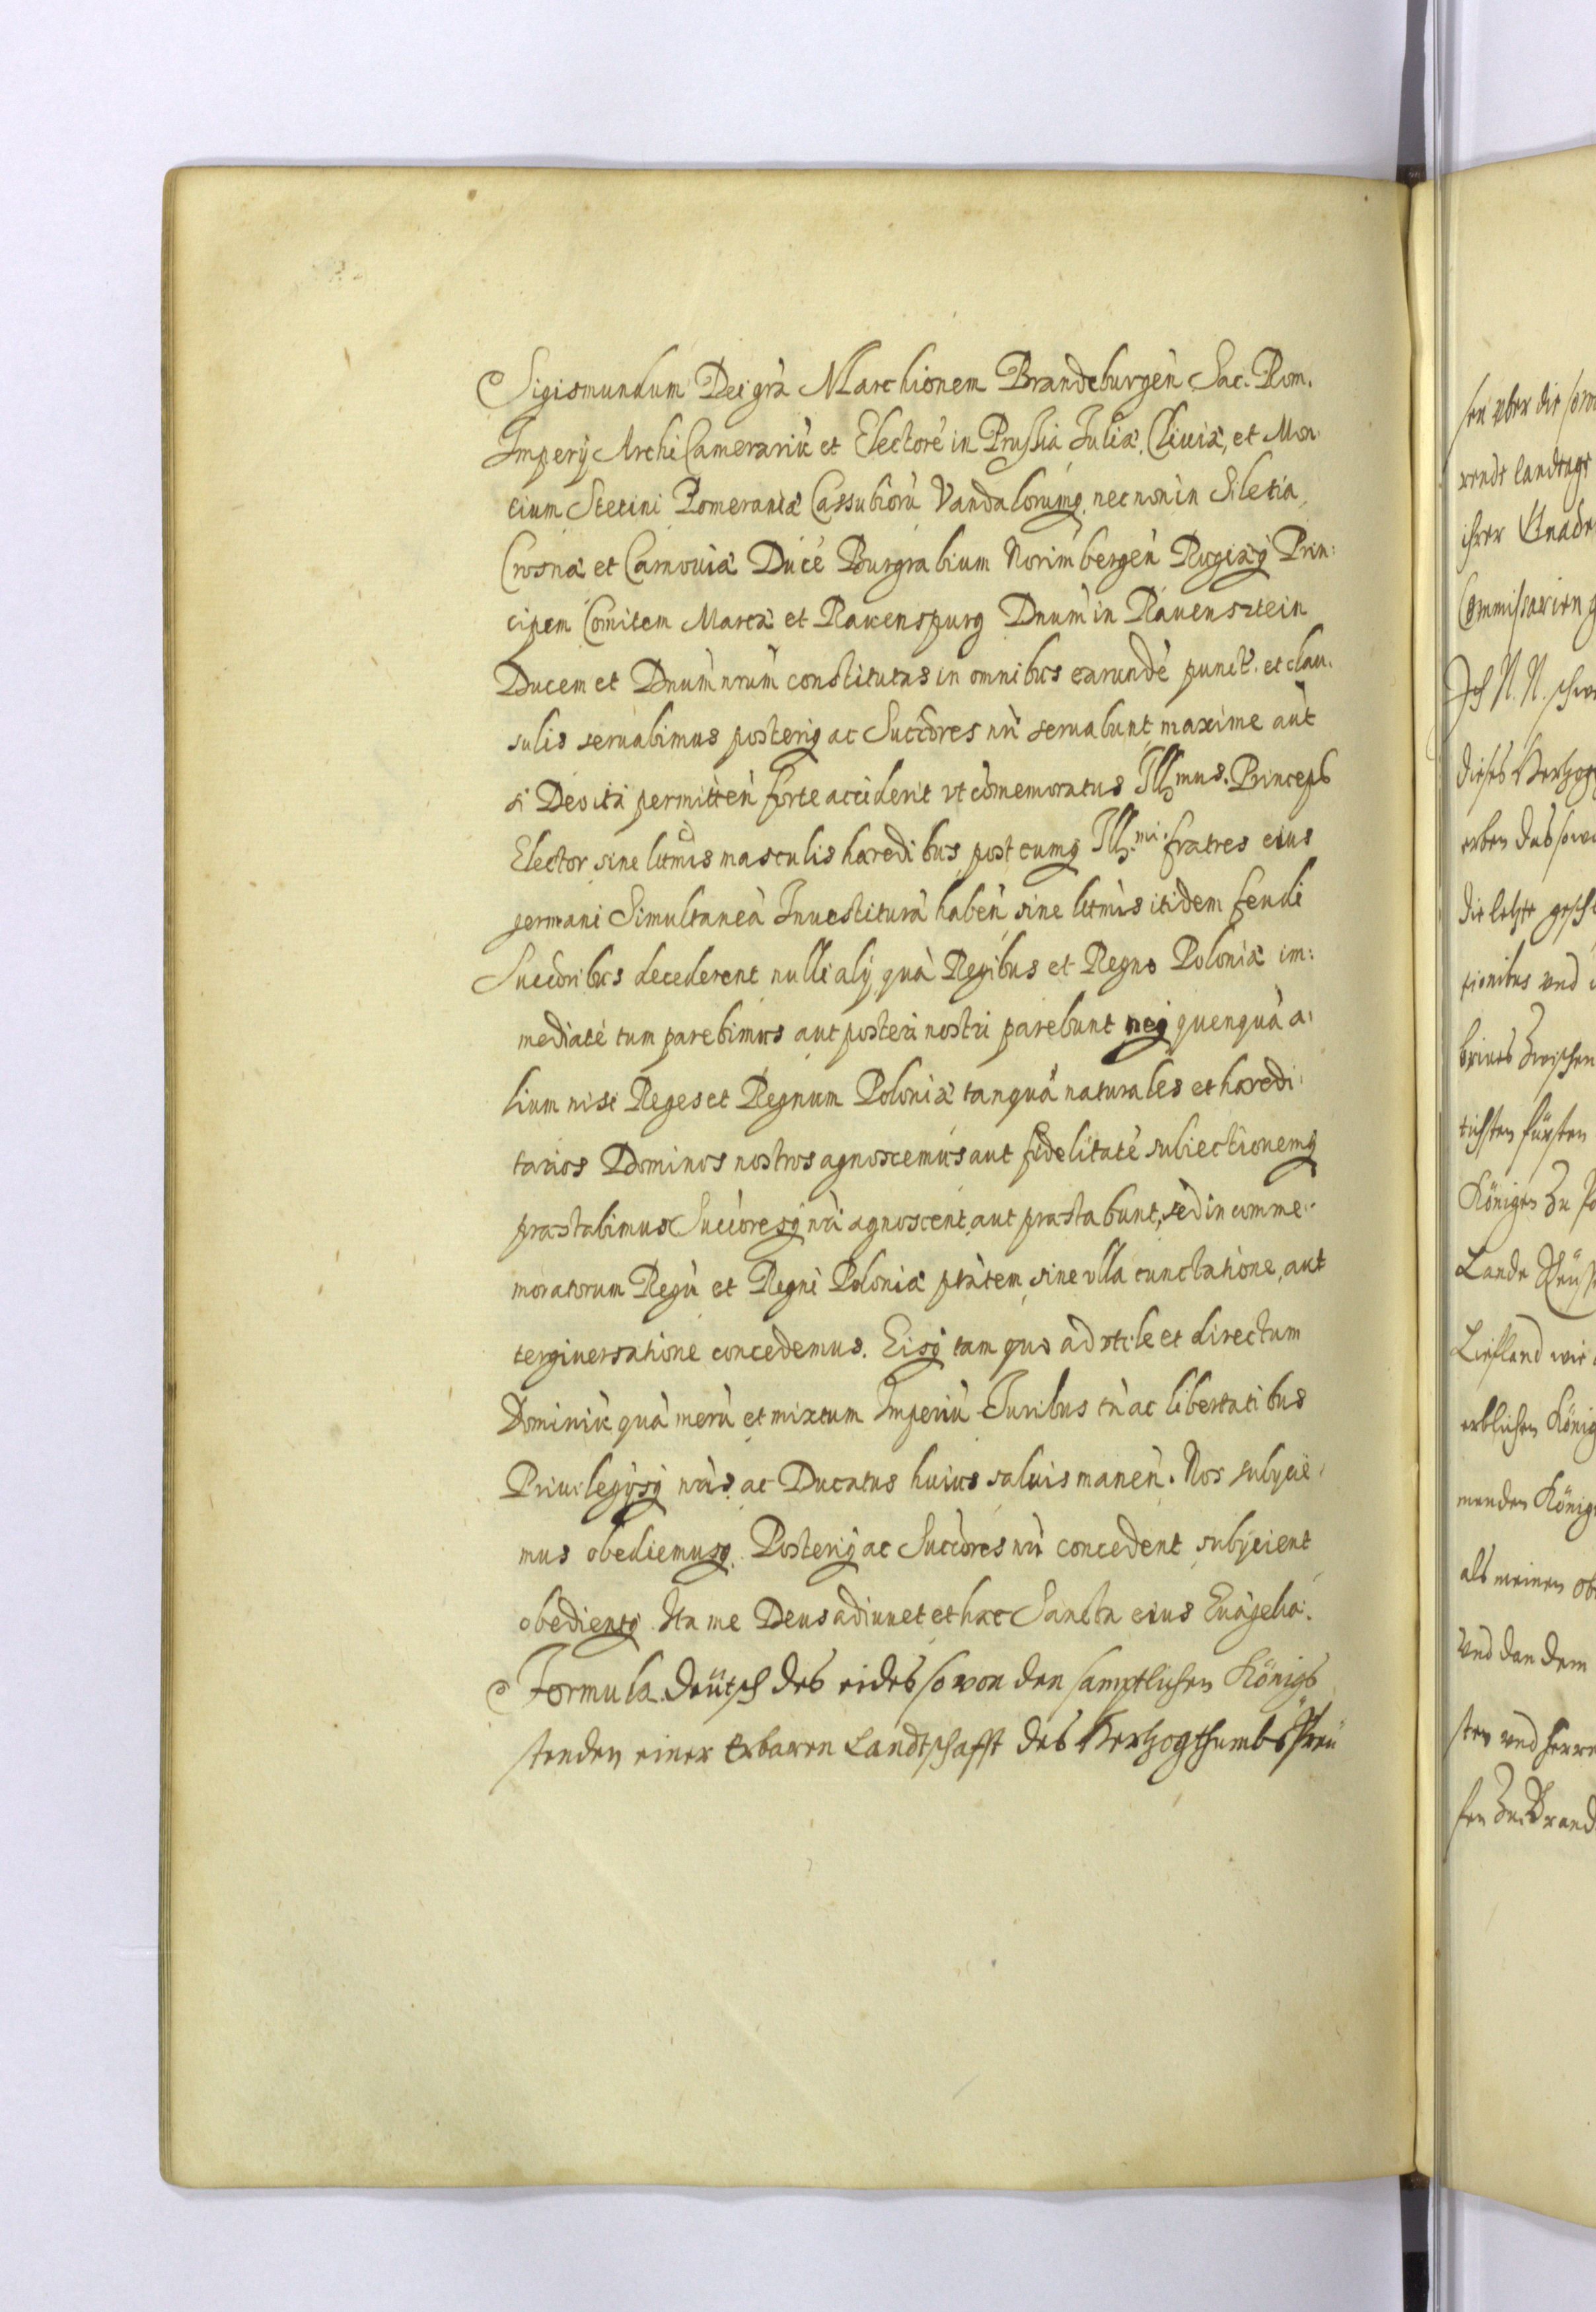 Sigismundum Dei grà Marchionem Brandeburgeǹ Sac. Rom.
Imperÿ ArchiCamerariũ et Electorē in Prussia Juliæ, Cliviæ, et Mon
tium Stetini Pomeraniæ Cassubiorū Vandalorumq̃ nec non in Silesia,
Crosnæ et Carnoviæ Ducē Burgrabium Norimbergeǹ Rugiæq̃ Prin:
cipem Comitem Marcæ et Rauenspurg Dnum̀ in Rauensztein
Ducem et Dnum̀ nrum̀ constitutas in omnibus earundē punct. et clau.
sulis seruabimus posteriq̃ ac Succ̄ores nr̄i seruabunt maxime aūt
si Deo ità permitteǹ forte acciderit vt cōmemoratus Ill.mus Princeps
Elector sine ltm̄is masculis hæredibus, post eumq̃ Ill.mi fratres eius
germani Simultaneā Inuestiturā habeǹ sine ltm̄is itidem feudi
Succ̄oribus decederent nulli alÿ quā Regibus et Regno Poloniæ im:
mediatè tum parebimus aut posteri nostri parebunt neq̃ quenquā a:
lium nisi Reges et Regnum Poloniæ tanquā naturales et hæredi:
tarios Dominos nostros agnoscemus aut fidelitatē subiectionemq̃
præstabimus Succ̄oresq̃ nr̄i agnoscent aut præstabunt, sed in comme:
moratorum Regū et Regni Poloniæ ptātem, sine vlla cunctatione, aut
tergiuersatione concedemus. Eisq̃ tam quo ad vtile et directum
Dominiũ quā merū et mixtum Imperiū Juribus tn̄ ac libertatibus
Priuilegÿsq̃ nrīs ac Ducatus huius saluis maneǹ. Nos subÿcie:
mus obediemusq̃. Posteriq̃ ac Succ̄ores nr̄i concedent subÿcient
obedientq̃. Ita me Deus adiuuet et hæc Sancta eius Euāgelia.
Formula deütsch des eides so von den samptlichen Königs
stenden einer Erbaren Landtschafft des Hertzogthumbs Preü
sen vber die
rende landtags
ihrer Gnade
Commissarien
Ich N. N.
dieses Hertzog
erben das
die letzte
tionibus vnd
briues Zwischen
tichsten fürsten
Königen Zu
Lande
Liefland wie
erblichen König
menden König
als meinen
vnd dan dem
sten vnd herre
sen Zu Brand